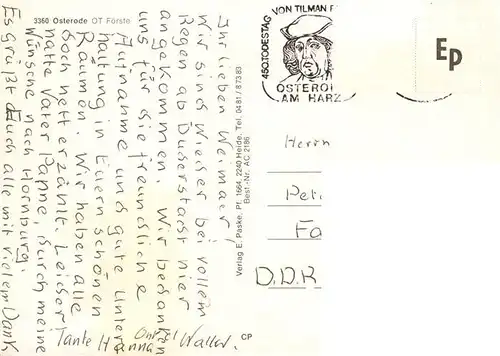 3360 Osterode OT Förste
Ihr lieben Weimaer,
Wir sind wieder bei vollem
Regen ab Duderstadt hier
angekommen. Wir bedanken
uns für die freundliche
Aufnahme und gute Unter
haltung in Euern schönen
Räumen. Wir haben alle
doch nett erzählt. Leider
hatte Vater Panne, durch meine
Wünsche nach Hornburg.
Es grüßt Euch alle mit vielem Dank
Tante Hanna Onkel Walter.
Verlag E. Paske, Pf. 1664, 2240 Heide, Tel. 0481/87383
Best.-Nr. AC 2186
CP
450. TODESTAG VON TILMAN R
OSTERO
AM HARZ
Ep
Herrn
Pet
Fa
D.D.R